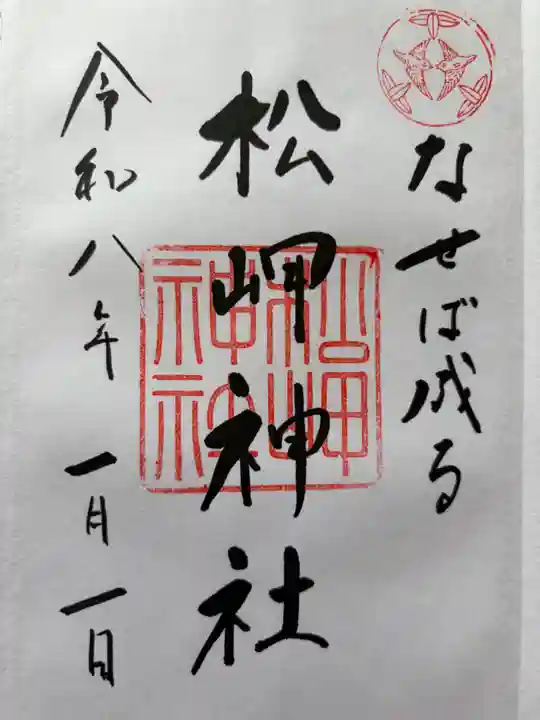 なせば成る
松岬神社
松岬神社
令和八年 一月一日